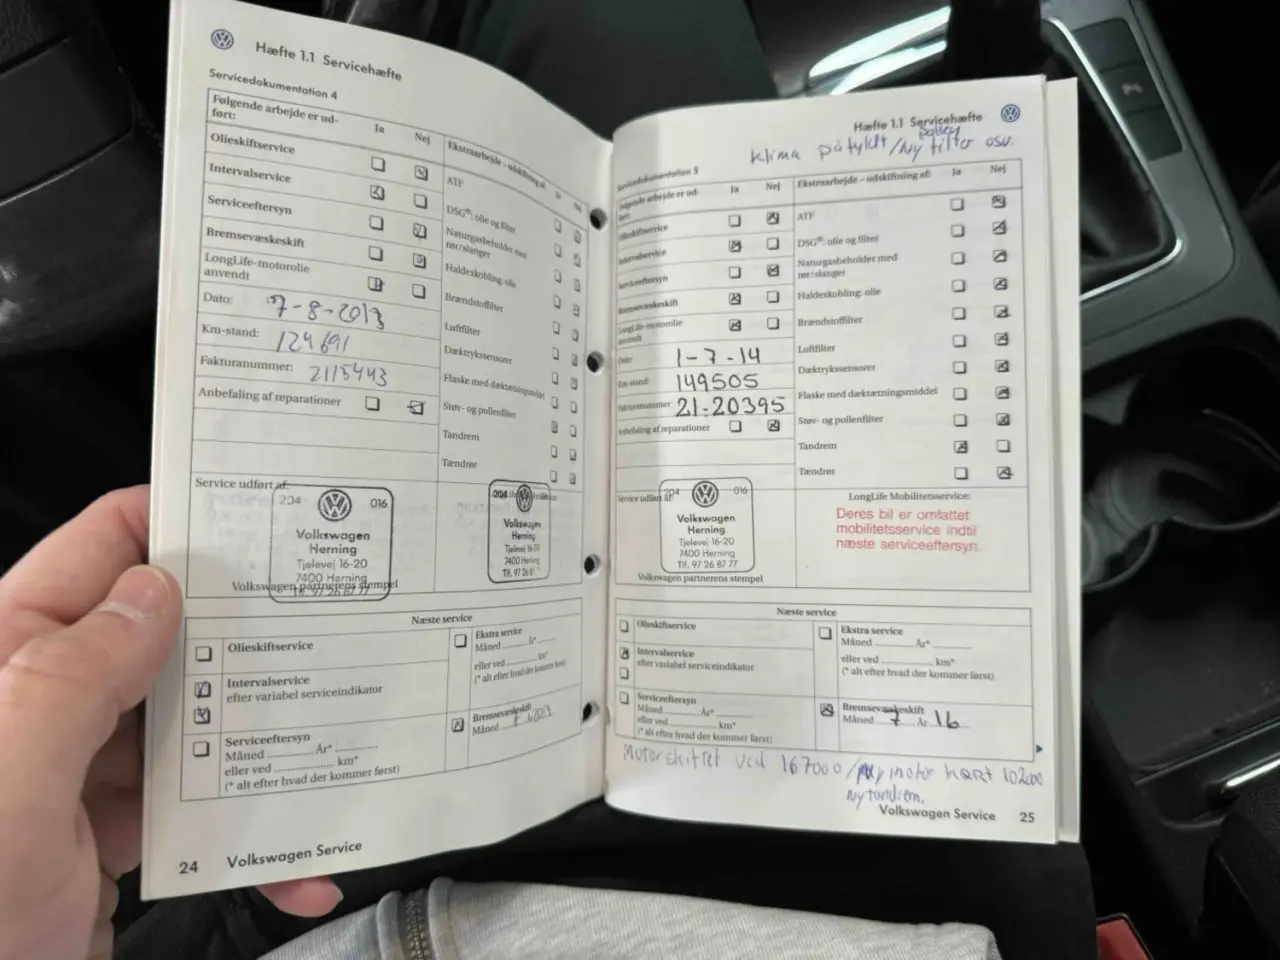 Hæfte 1.1 Servicehæfte
Servicedokumentation 4
Følgende arbejde er ud-
ført:
Ja
Nej
Olieskiftservice
Intervalservice
Serviceeftersyn
Bremsevæskeskift
LongLife-motorolie
anvendt
Dato: 7-8-2013
Km-stand: 124691
Fakturanummer: 2115443
Anbefaling af reparationer
Ekstraarbejde - udskiftning af:
Ja
Nej
ATF
DSG®: olie og filter
Naturgasbeholder med
rør/slanger
Haldexkobling: olie
Brændstoffilter
Luftfilter
Dæktrykssensorer
Flaske med dæktætningsmiddel
Støv- og pollenfilter
Tandrem
Tændrør
Service udført af:
204 016
Volkswagen
Herning
Tjelevej 16-20
7400 Herning
Tlf. 97 26 87 77
Volkswagen partnerens stempel
204
Volkswagen
Herning
Tjelevej 16-20
7400 Herning
Tlf. 97 26 87
Næste service
Olieskiftservice
Intervalservice
efter variabel serviceindikator
Serviceeftersyn
Måned ............ År* ............
eller ved ............ km*
(* alt efter hvad der kommer først)
Ekstra service
Måned ............ År* ............
eller ved ............ km*
(* alt efter hvad der kommer først)
Bremsevæskeskift
Måned
24 Volkswagen Service
Hæfte 1.1 Servicehæfte
Klima påfyldt / Ny pollen filter osv.
Servicedokumentation 5
Følgende arbejde er ud-
ført:
Ja
Nej
Olieskiftservice
Intervalservice
Serviceeftersyn
Bremsevæskeskift
LongLife-motorolie
anvendt
Dato: 1-7-14
Km-stand: 149505
Fakturanummer 21-20395
Anbefaling af reparationer
Ekstraarbejde - udskiftning af:
Ja
Nej
ATF
DSG®: olie og filter
Naturgasbeholder med
rør/slanger
Haldexkobling: olie
Brændstoffilter
Luftfilter
Dæktrykssensorer
Flaske med dæktætningsmiddel
Støv- og pollenfilter
Tandrem
Tændrør
Service udført af:
204 016
Volkswagen
Herning
Tjelevej 16-20
7400 Herning
Tlf. 97 26 87 77
Volkswagen partnerens stempel
LongLife Mobilitetsservice:
Deres bil er omfattet
mobilitetsservice indtil
næste serviceeftersyn.
Næste service
Olieskiftservice
Intervalservice
efter variabel serviceindikator
Serviceeftersyn
Måned ............ År* ............
eller ved ............ km*
(* alt efter hvad der kommer først)
Ekstra service
Måned ............ År* ............
eller ved ............ km*
(* alt efter hvad der kommer først)
Bremsevæskeskift
Måned 7 År 16
Motor skiftet ved 167000 / Ny motor kørt 102000
Ny tandrem.
Volkswagen Service 25